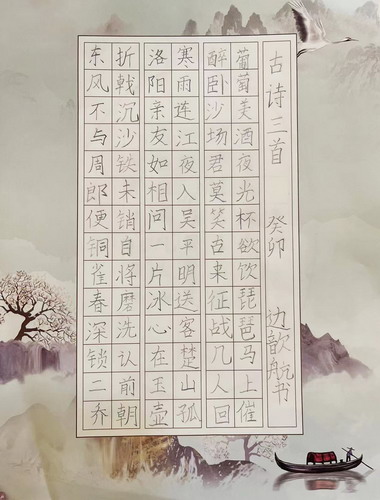 古诗三首 癸卯 边歆航书
葡萄美酒夜光杯欲饮琵琶马上催
醉卧沙场君莫笑古来征战几人回
寒雨连江夜入吴平明送客楚山孤
洛阳亲友如相问一片冰心在玉壶
折戟沉沙铁未销自将磨洗认前朝
东风不与周郎便铜雀春深锁二乔